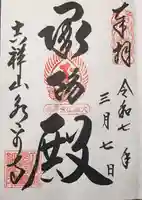 奉拝
令和七年
三月七日
承陽殿
吉祥山永平寺